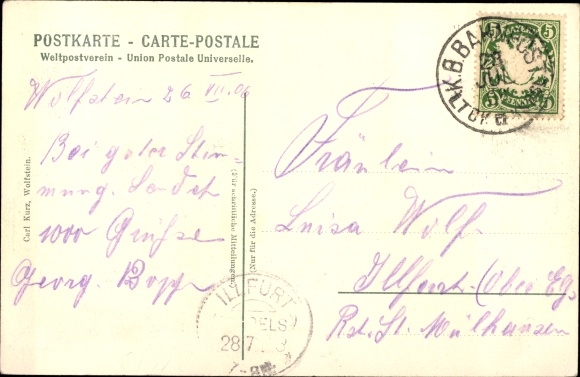 POSTKARTE - CARTE-POSTALE
Weltpostverein - Union Postale Universelle.
Wolfstein 26 VII. 06
Bei guter Stim-
mung. Sendet
1000 Grüße
Georg. Bopp
Carl Kurz, Wolfstein.
(Für schriftliche Mitteilungen)
(Nur für die Adresse.)
Fräulein
Luisa Wolf
Illfurt (Ober Els.
Rst. St. Mülhausen
K.B.BAHNPOST
JUL
5 5
ILLFURT
ELS
28 7
7-8